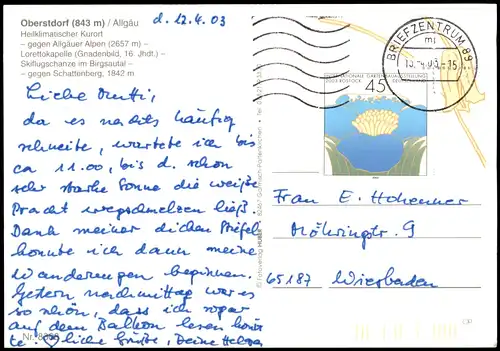 Oberstdorf (843 m) / Allgäu
Heilklimatischer Kurort
– gegen Allgäuer Alpen (2657 m) –
Lorettokapelle (Gnadenbild, 16. Jhdt.) –
Skiflugschanze im Birgsautal –
– gegen Schattenberg, 1842 m
d. 12.4.03
Liebe Mutti,
da es nachts häufig
schneite, wartete ich bis
ca 11.00, bis d. schon
sehr starke Sonne die weiße
Pracht wegschmelzen ließ.
Dank meiner dicken Stiefel
konnte ich dann meine
Wanderungen beginnen.
Gestern nachmittag war es
so schön, dass ich sogar
auf dem Balkon lesen konn-
te. ♡liche Grüße, Deine Helga
BRIEFZENTRUM 89
mj
INTERNATIONALE GARTENBAUAUSSTELLUNG
2003 ROSTOCK
45
Frau E. Hohenner
Möhringstr. 9
65187 Wiesbaden